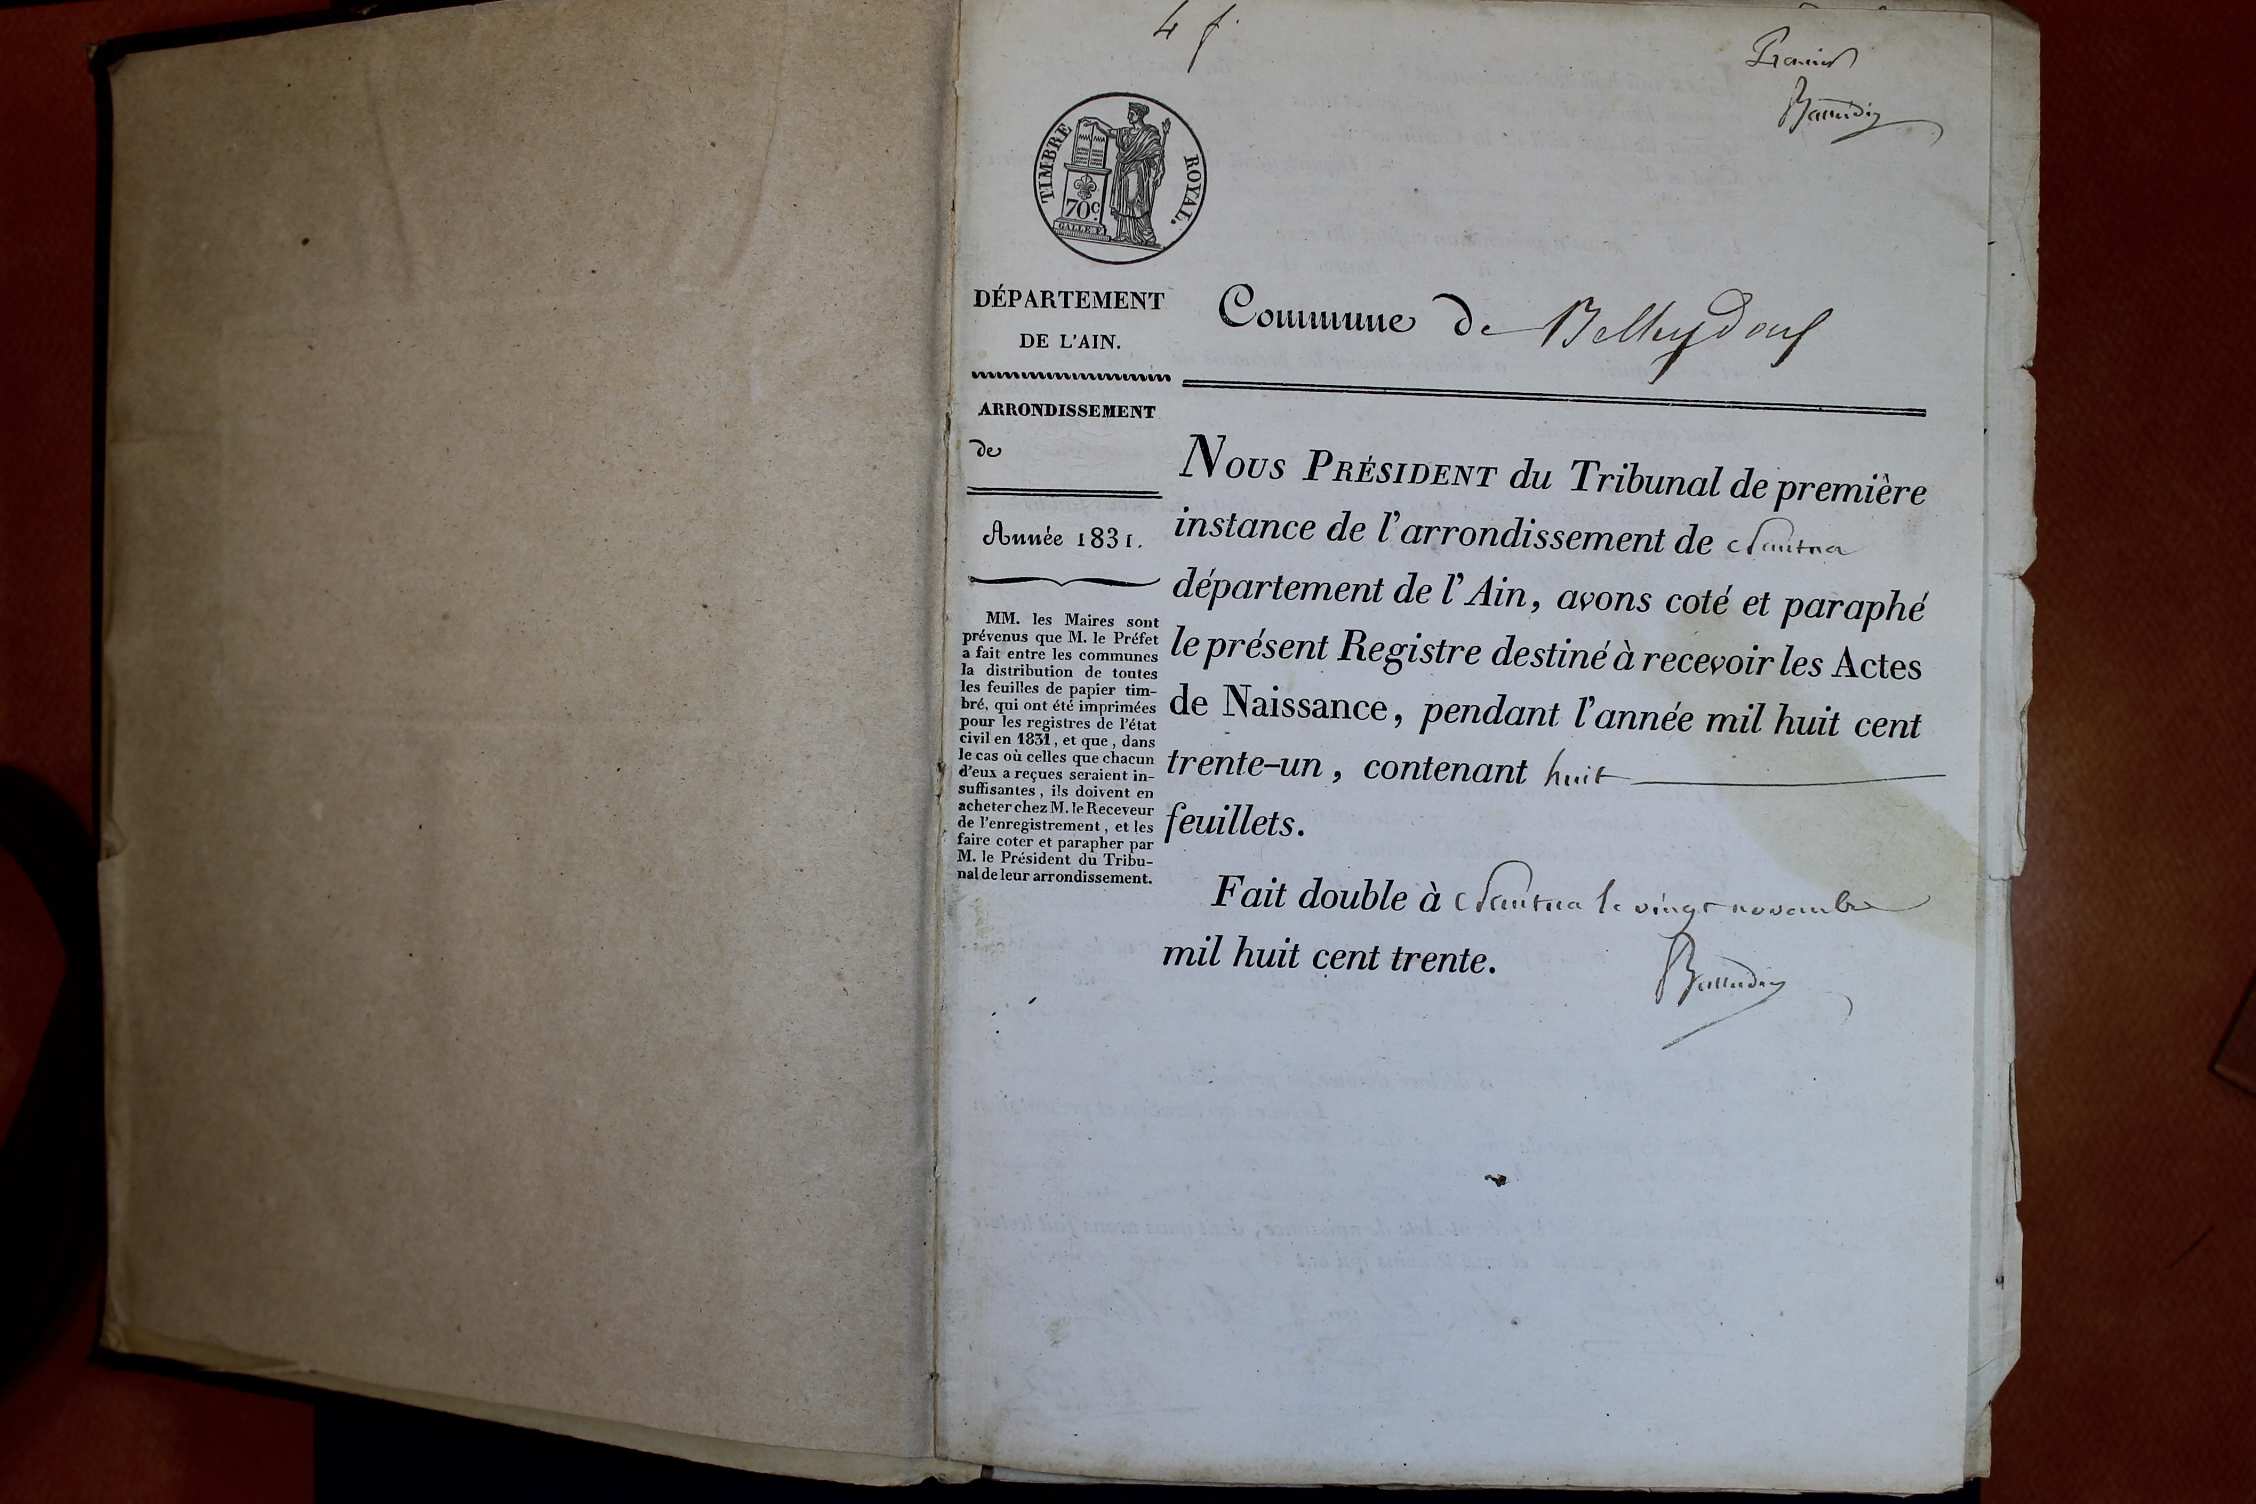 4 f
Premier
TIMBRE ROYAL.
70 c.
GALLE F.
DÉPARTEMENT
DE L'AIN.
ARRONDISSEMENT
de
Année 1831.
MM. les Maires sont
prévenus que M. le Préfet
a fait entre les communes
la distribution de toutes
les feuilles de papier tim-
bré, qui ont été imprimées
pour les registres de l'état
civil en 1831, et que, dans
le cas où celles que chacun
d'eux a reçues seraient in-
suffisantes, ils doivent en
acheter chez M. le Receveur
de l'enregistrement, et les
faire coter et parapher par
M. le Président du Tribu-
nal de leur arrondissement.
Commune de Belleydoux
NOUS PRÉSIDENT du Tribunal de première
instance de l'arrondissement de Nantua
département de l'Ain, avons coté et paraphé
le présent Registre destiné à recevoir les Actes
de Naissance, pendant l'année mil huit cent
trente-un, contenant huit
feuillets.
Fait double à Nantua le vingt novembre
mil huit cent trente.